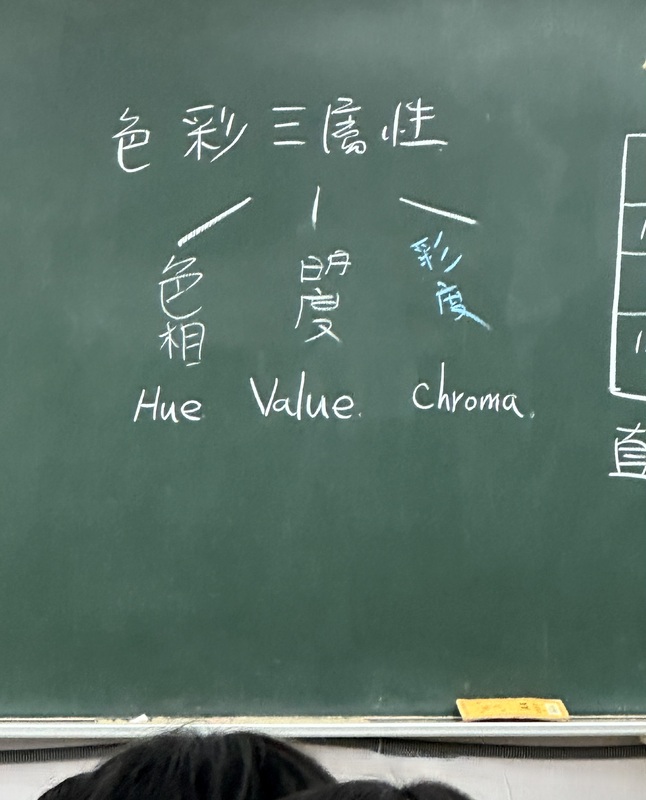 色彩三屬性
色相
明度
彩度
Hue Value. Chroma.
直